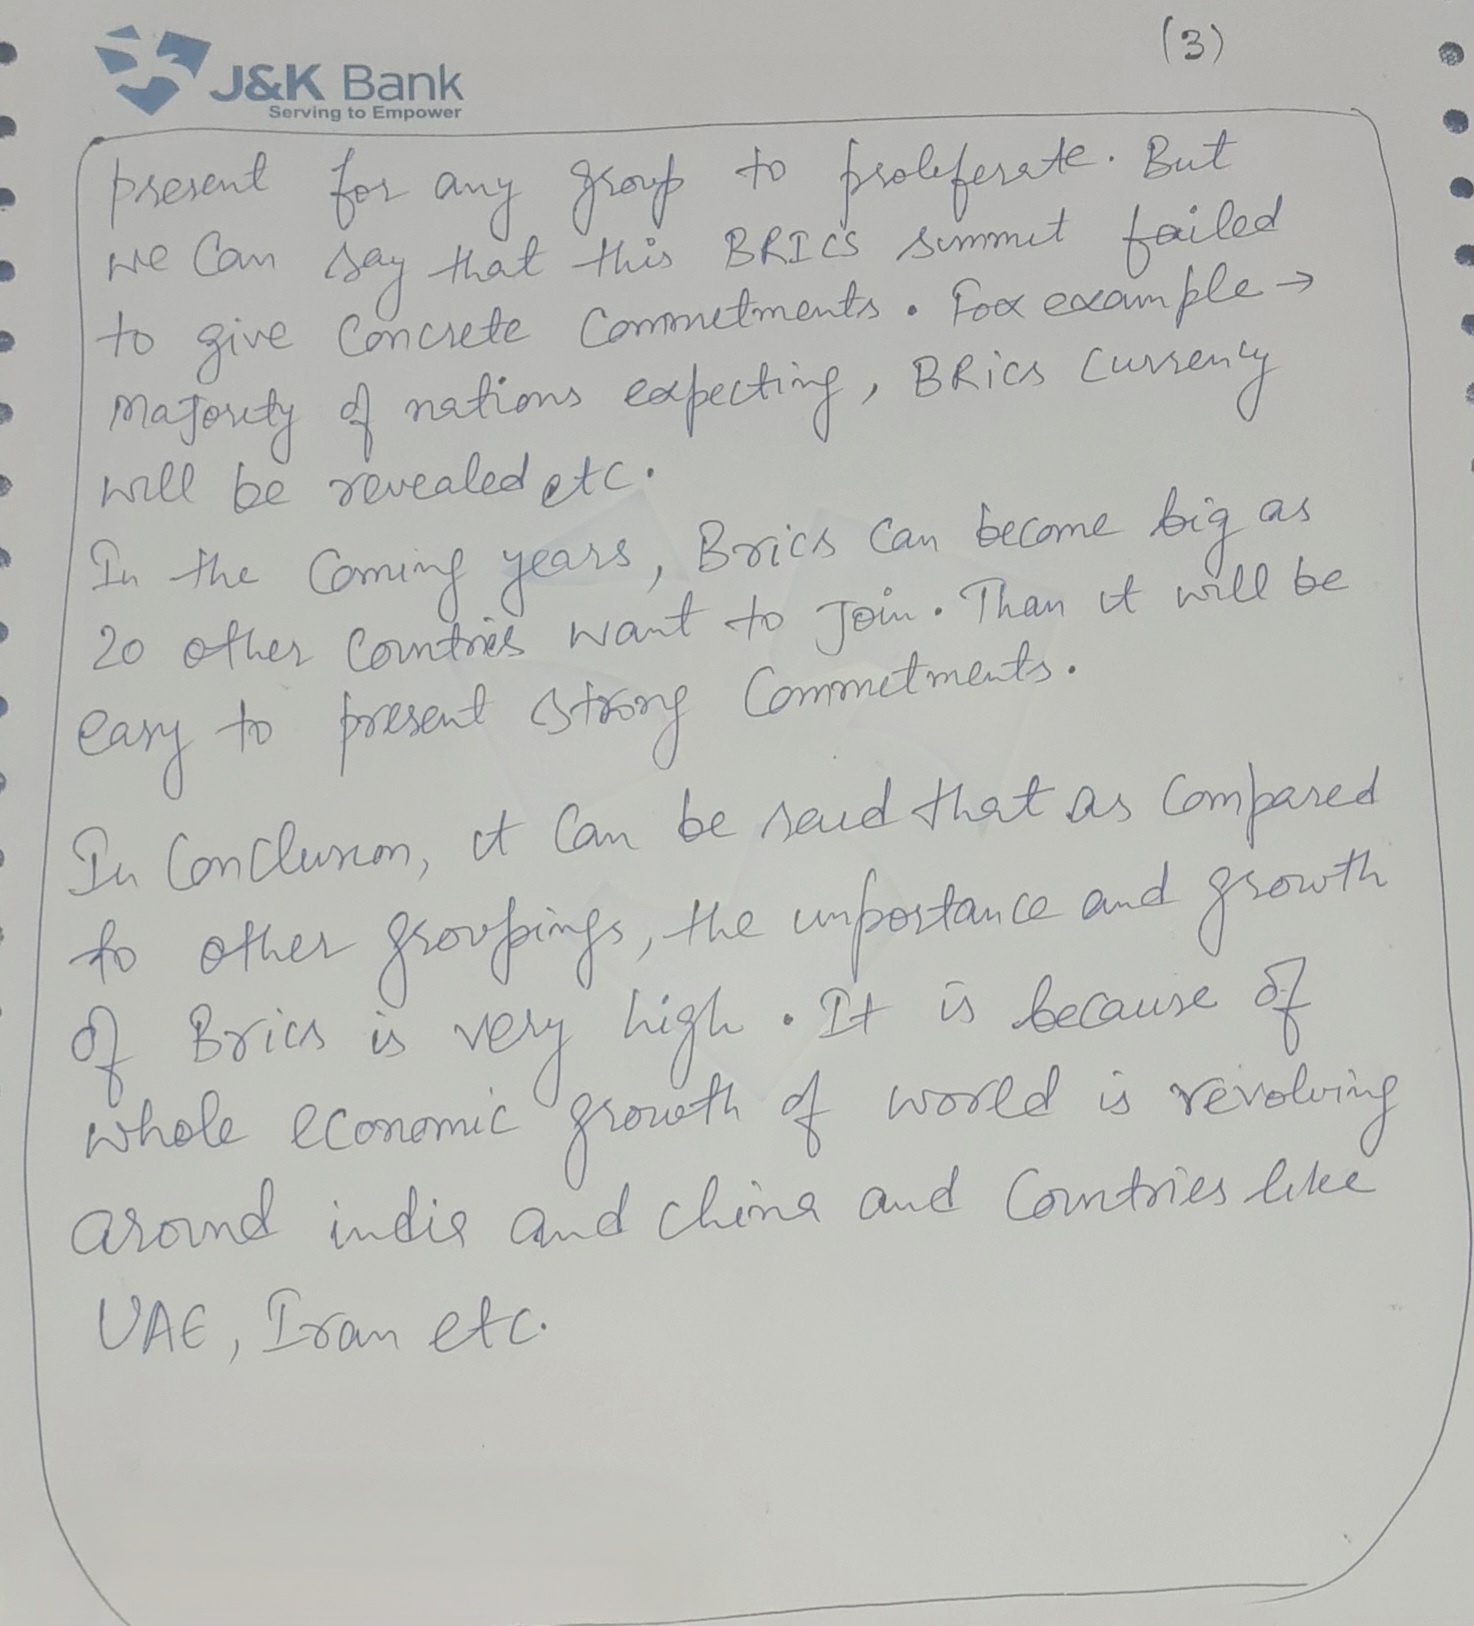 (3)
J&K Bank
Serving to Empower
present for any group to proleferate. But
we Can say that this BRICS summit failed
to give Concrete Commetments. For example →
Majority of nations expecting, BRics Currency
will be revealed etc.
In the Coming years, Brics Can become big as
20 other Countries want to Join. Than it will be
easy to present strong Commetments.
In Conclusion, it Can be said that as Compared
to other groupings, the importance and growth
of Brics is very high. It is because of
whole economic growth of world is revolving
around india and china and Countries like
UAE, Iran etc.